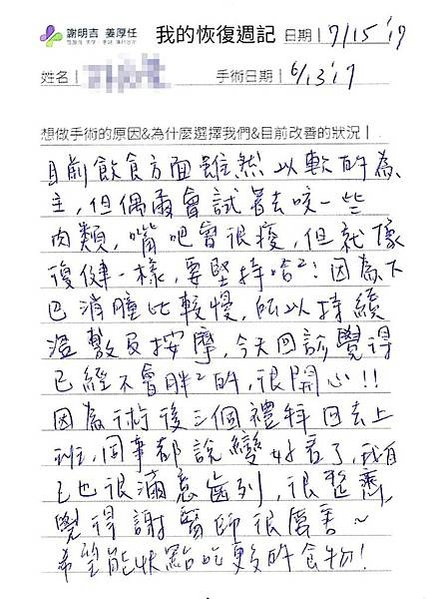 謝明吉 姜厚任 我的恢復週記 日期| 7/15 '17
姓名| 手術日期| 6/13 '17
想做手術的原因&為什麼選擇我們&目前改善的狀況|
目前飲食方面雖然以軟的為
主,但偶爾會試著去咬一些
肉類,嘴吧會很痠,但就像
復健一樣,要堅持哈²!因為下
巴消腫比較慢,所以持續
溫敷及按摩,今天回診覺得
已經不會胖²的,很開心!!
因為術後三個禮拜回去上
班,同事都說變好看了,我自
己也很滿意齒列,很整齊,
覺得謝醫師很厲害~
希望能快點吃更多的食物!